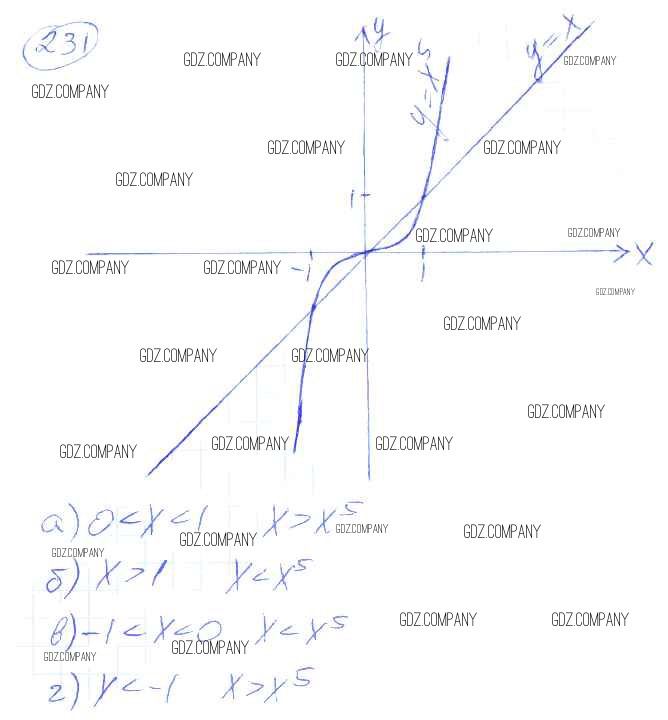 231
y
y = x⁵
y = x
GDZ.COMPANY GDZ.COMPANY GDZ.COMPANY
GDZ.COMPANY
GDZ.COMPANY GDZ.COMPANY
GDZ.COMPANY
1
GDZ.COMPANY GDZ.COMPANY
GDZ.COMPANY GDZ.COMPANY -1 1 x
GDZ.COMPANY
GDZ.COMPANY
GDZ.COMPANY GDZ.COMPANY
GDZ.COMPANY
GDZ.COMPANY GDZ.COMPANY GDZ.COMPANY
а) 0 < x < 1 x > x⁵
GDZ.COMPANY GDZ.COMPANY GDZ.COMPANY
GDZ.COMPANY
б) x > 1 x < x⁵
GDZ.COMPANY GDZ.COMPANY
в) -1 < x < 0 x < x⁵
GDZ.COMPANY GDZ.COMPANY
г) x < -1 x > x⁵